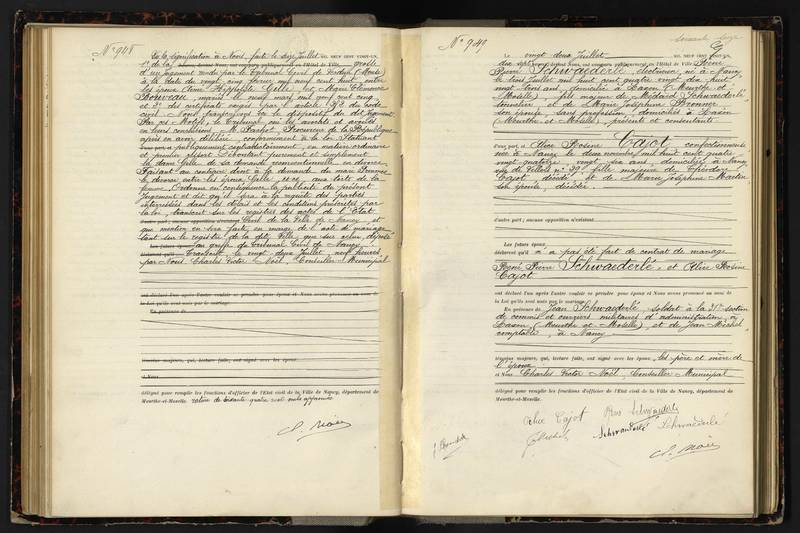 N° 948
En la signification à Nous, faite le seize Juillet mil neuf cent vingt-un,
1° de la grosse
d'un jugement rendu par le Tribunal Civil de Verdun (Meuse)
à la date du vingt cinq février mil neuf cent huit, entre
les époux
mariés le neuf mars mil neuf cent cinq
et 2° des certificats exigés par l'article 252 du code
civil. Nous transcrivons ici le dispositif du dit jugement
Par ces Motifs, le Tribunal ouï les avocats et avoués
en leurs conclusions, M. Procureur de la République
après en avoir délibéré conformément à la loi Statuant
publiquement contradictoirement, en matière ordinaire
et premier ressort Déboutant purement et simplement
la dame Gille de sa demande reconventionnelle en divorce
Faisant au contraire droit à la demande du mari Prononce
le divorce entre les époux Gille aux torts de la
femme. Ordonne en conséquence la publicité du présent
Jugement et dit qu'il sera à la requête des parties
intéressées dans les délais et les conditions prescrites par
la loi, transcrit sur les registres des actes de l'Etat
Civil de la Ville de Nancy et
que mention en sera faite en marge de l'acte de mariage
tant sur le registre de la dite Ville que sur celui déposé
au greffe du Tribunal Civil de Nancy
Transcrit le vingt deux Juillet neuf heures
par Nous Charles Victor Noël, Conseiller Municipal
ont déclaré l'un après l'autre vouloir se prendre pour époux et Nous avons prononcé au nom de
la Loi qu'ils sont unis par le mariage
En présence de
témoins majeurs, qui, lecture faite, ont signé avec les époux
et Nous
délégué pour remplir les fonctions d'officier de l'Etat civil de la Ville de Nancy, département de
Meurthe-et-Moselle.
C. Noël
N° 949
Le vingt deux Juillet mil neuf cent vingt-un,
dix sept heures devant Nous, ont comparu publiquement en l'Hôtel de Ville René
Pierre Schwaederlé, électricien, né à Nancy
le trois Juillet mil huit cent quatre vingt dix huit
vingt trois ans, domicilié à Laxou (Meurthe et
Moselle), fils majeur de Médard Schwaederlé
tonnelier, et de Marie Joséphine Bronner
son épouse, sans profession, domiciliés à Laxou
(Meurthe et Moselle), présents et consentants
D'une part; et Alice Rosine Cajot, confectionneuse
née à Nancy le deux novembre mil huit cent quatre
vingt quatorze, vingt six ans, domiciliée à Nancy
N° 30, fille majeure de
Cajot, décédé, et de Marie Joséphine Martin
son épouse, décédée.
d'autre part; aucune opposition n'existant
Les futurs époux
déclarent qu'il n'a pas été fait de contrat de mariage
René Pierre Schwaederlé, et Alice Rosine
Cajot
ont déclaré l'un après l'autre vouloir se prendre pour époux et Nous avons prononcé au nom de
la Loi qu'ils sont unis par le mariage
En présence de Jean Schwaederlé, soldat à la 31me section
de commis et ouvriers militaires d'administration, à
Laxou (Meurthe et Moselle), et de Jean Michel,
comptable, à Nancy
témoins majeurs, qui, lecture faite, ont signé avec les époux, les père et mère de
l'époux
et Nous Charles Victor Noël, Conseiller Municipal
délégué pour remplir les fonctions d'officier de l'Etat civil de la Ville de Nancy, département de
Meurthe-et-Moselle.
Alice Cajot
René Schwaederlé
J. Bronner
Schwaederlé
Schwaederlé
C. Noël